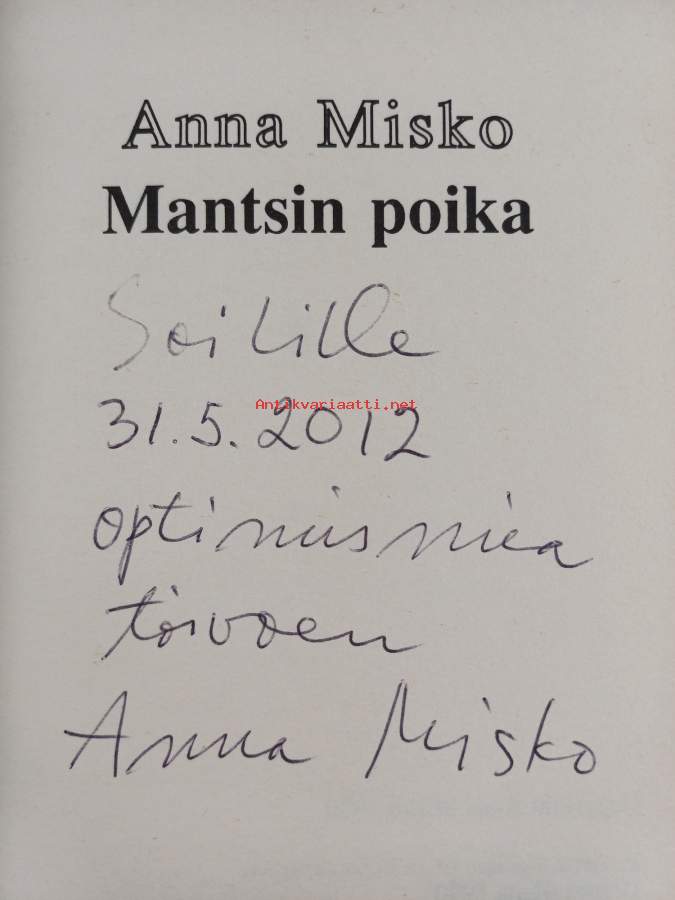 Anna Misko
Mantsin poika
Soilille
Antikvariaatti.net
31.5.2012
optimismia
toivoen
Anna Misko